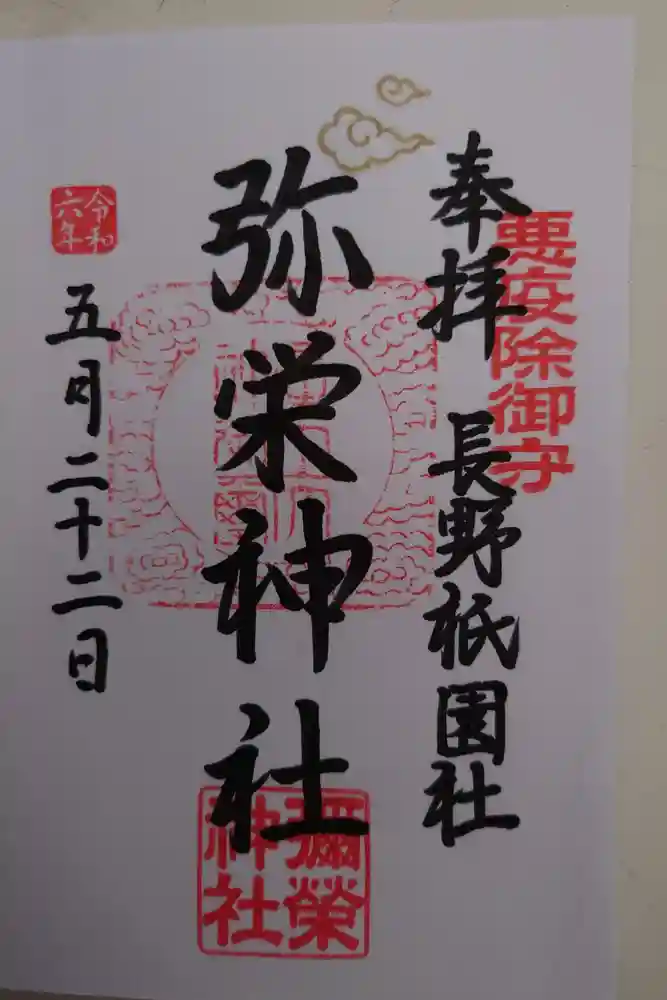 悪疫除御守
奉拝 長野祇園社
弥栄神社
彌榮
神社
令和
六年
五月二十二日